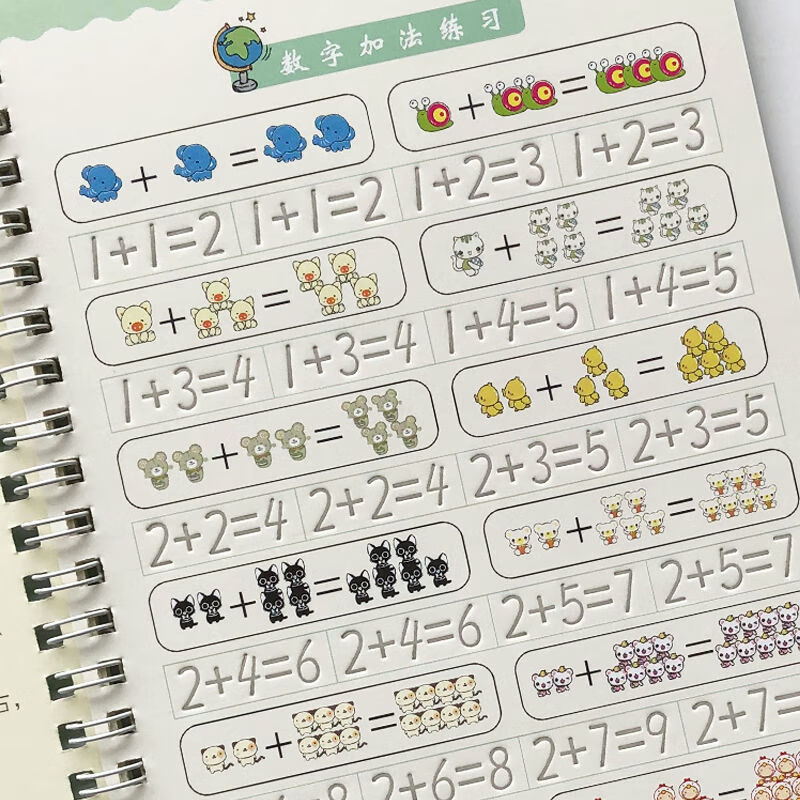 数字加法练习
+ =
+ =
1+1=2 1+1=2 1+2=3 1+2=3
+ =
+ =
1+3=4 1+3=4 1+4=5 1+4=5
+ =
+ =
2+2=4 2+2=4 2+3=5 2+3=5
+ =
+ =
2+4=6 2+4=6 2+5=7 2+5=7
+ =
+ =
2+6=8 2+7=9 2+7=